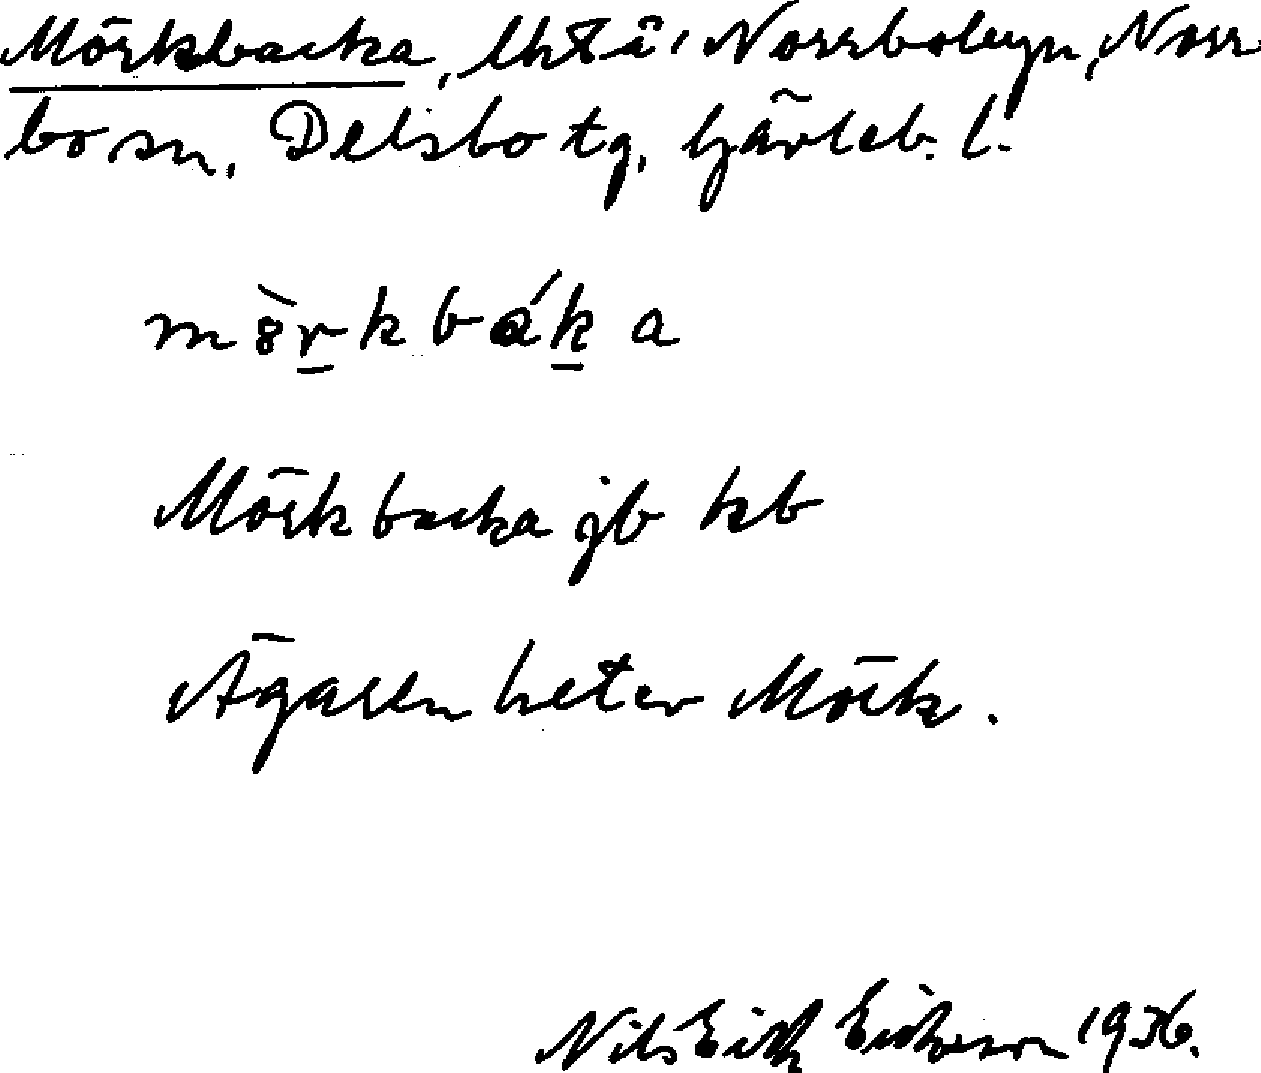 Mörkbacka, lht i Norrbobyn, Norr
bo sn, Delsbo tg, Gävleb. l.
mörkbáka
Mörkbacka jb kb
Ägaren heter Mörk.
Nils Erik Eriksson 1936.